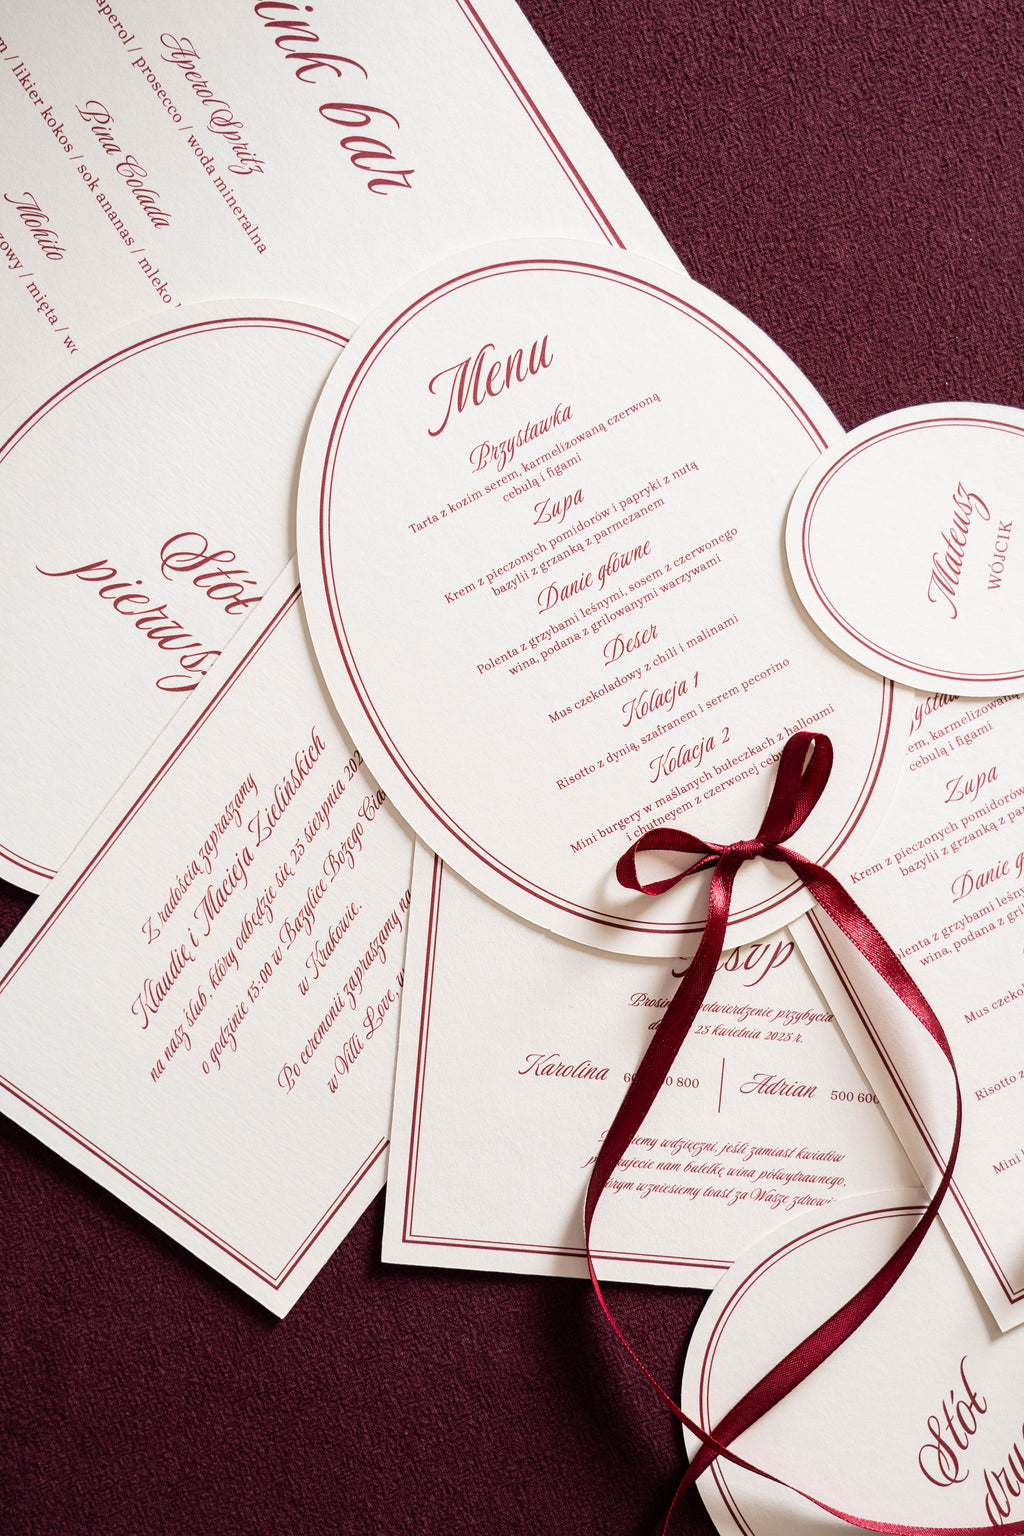 bar
Aperol Spritz
aperol / prosecco / woda mineralna
Pina Colada
/ likier kokos / sok ananas / mleko
Mohito
/ mięta /
Stół
Menu
Przystawka
Tarta z kozim serem, karmelizowaną czerwoną
cebulą i figami
Zupa
Krem z pieczonych pomidorów i papryki z nutą
bazylii z grzanką z parmezanem
Danie główne
Polenta z grzybami leśnymi, sosem z czerwonego
wina, podana z grilowanymi warzywami
Deser
Mus czekoladowy z chili i malinami
Kolacja 1
Risotto z dynią, szafranem i serem pecorino
Kolacja 2
Mini burgery w maślanych bułeczkach z halloumi
i chutneyem z czerwonej
Mateusz
WÓJCIK
Z radością zapraszamy
Klaudię i Macieja Zielińskich
na nasz ślub, który odbędzie się 25 sierpnia
o godzinie 15:00 w Bazylice Bożego
w Krakowie.
Po ceremonii zapraszamy na
w Villi Love,
potwierdzenie przybycia
25 kwietnia 2025 r.
Karolina
800
Adrian
500 600
wdzięczni, jeśli zamiast kwiatów
nam butelkę wina półwytrawnego,
wzniesiemy toast za Wasze
karmelizowaną
cebulą i figami
Zupa
Krem z pieczonych pomidorów
bazylii z grzanką z
Danie
z grzybami leśnymi,
wina, podana z
Mus
Risotto z
Mini
Stół